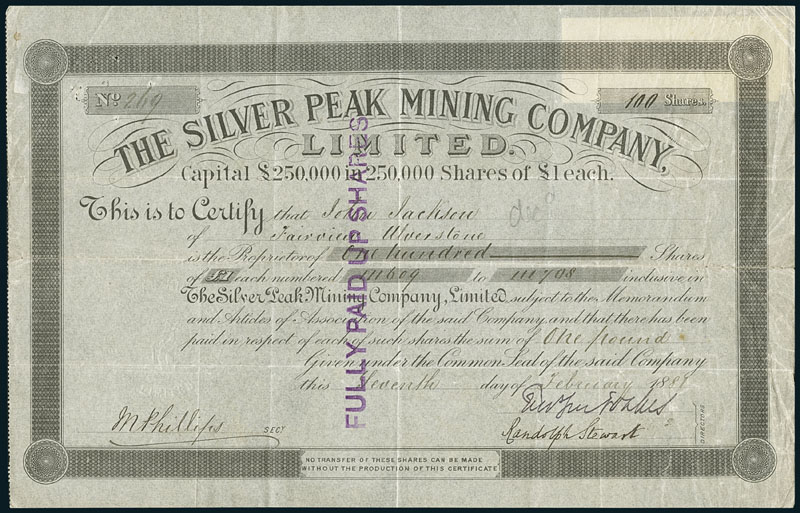 No. 269
100 Shares.
THE SILVER PEAK MINING COMPANY,
LIMITED.
Capital £250,000 in 250,000 Shares of £1 each.
This is to Certify that John Jackson
of Fairview Ulverstone
is the Proprietor of One hundred Shares
of £1 each numbered 111609 to 111708 inclusive in
The Silver Peak Mining Company, Limited subject to the Memorandum
and Articles of Association of the said Company and that there has been
paid in respect of each of such shares the sum of One pound
Given under the Common Seal of the said Company
this Eleventh day of February 1889
FULLY PAID UP SHARES
M Phillips SECY
Randolph Stewart
DIRECTORS
NO TRANSFER OF THESE SHARES CAN BE MADE
WITHOUT THE PRODUCTION OF THIS CERTIFICATE